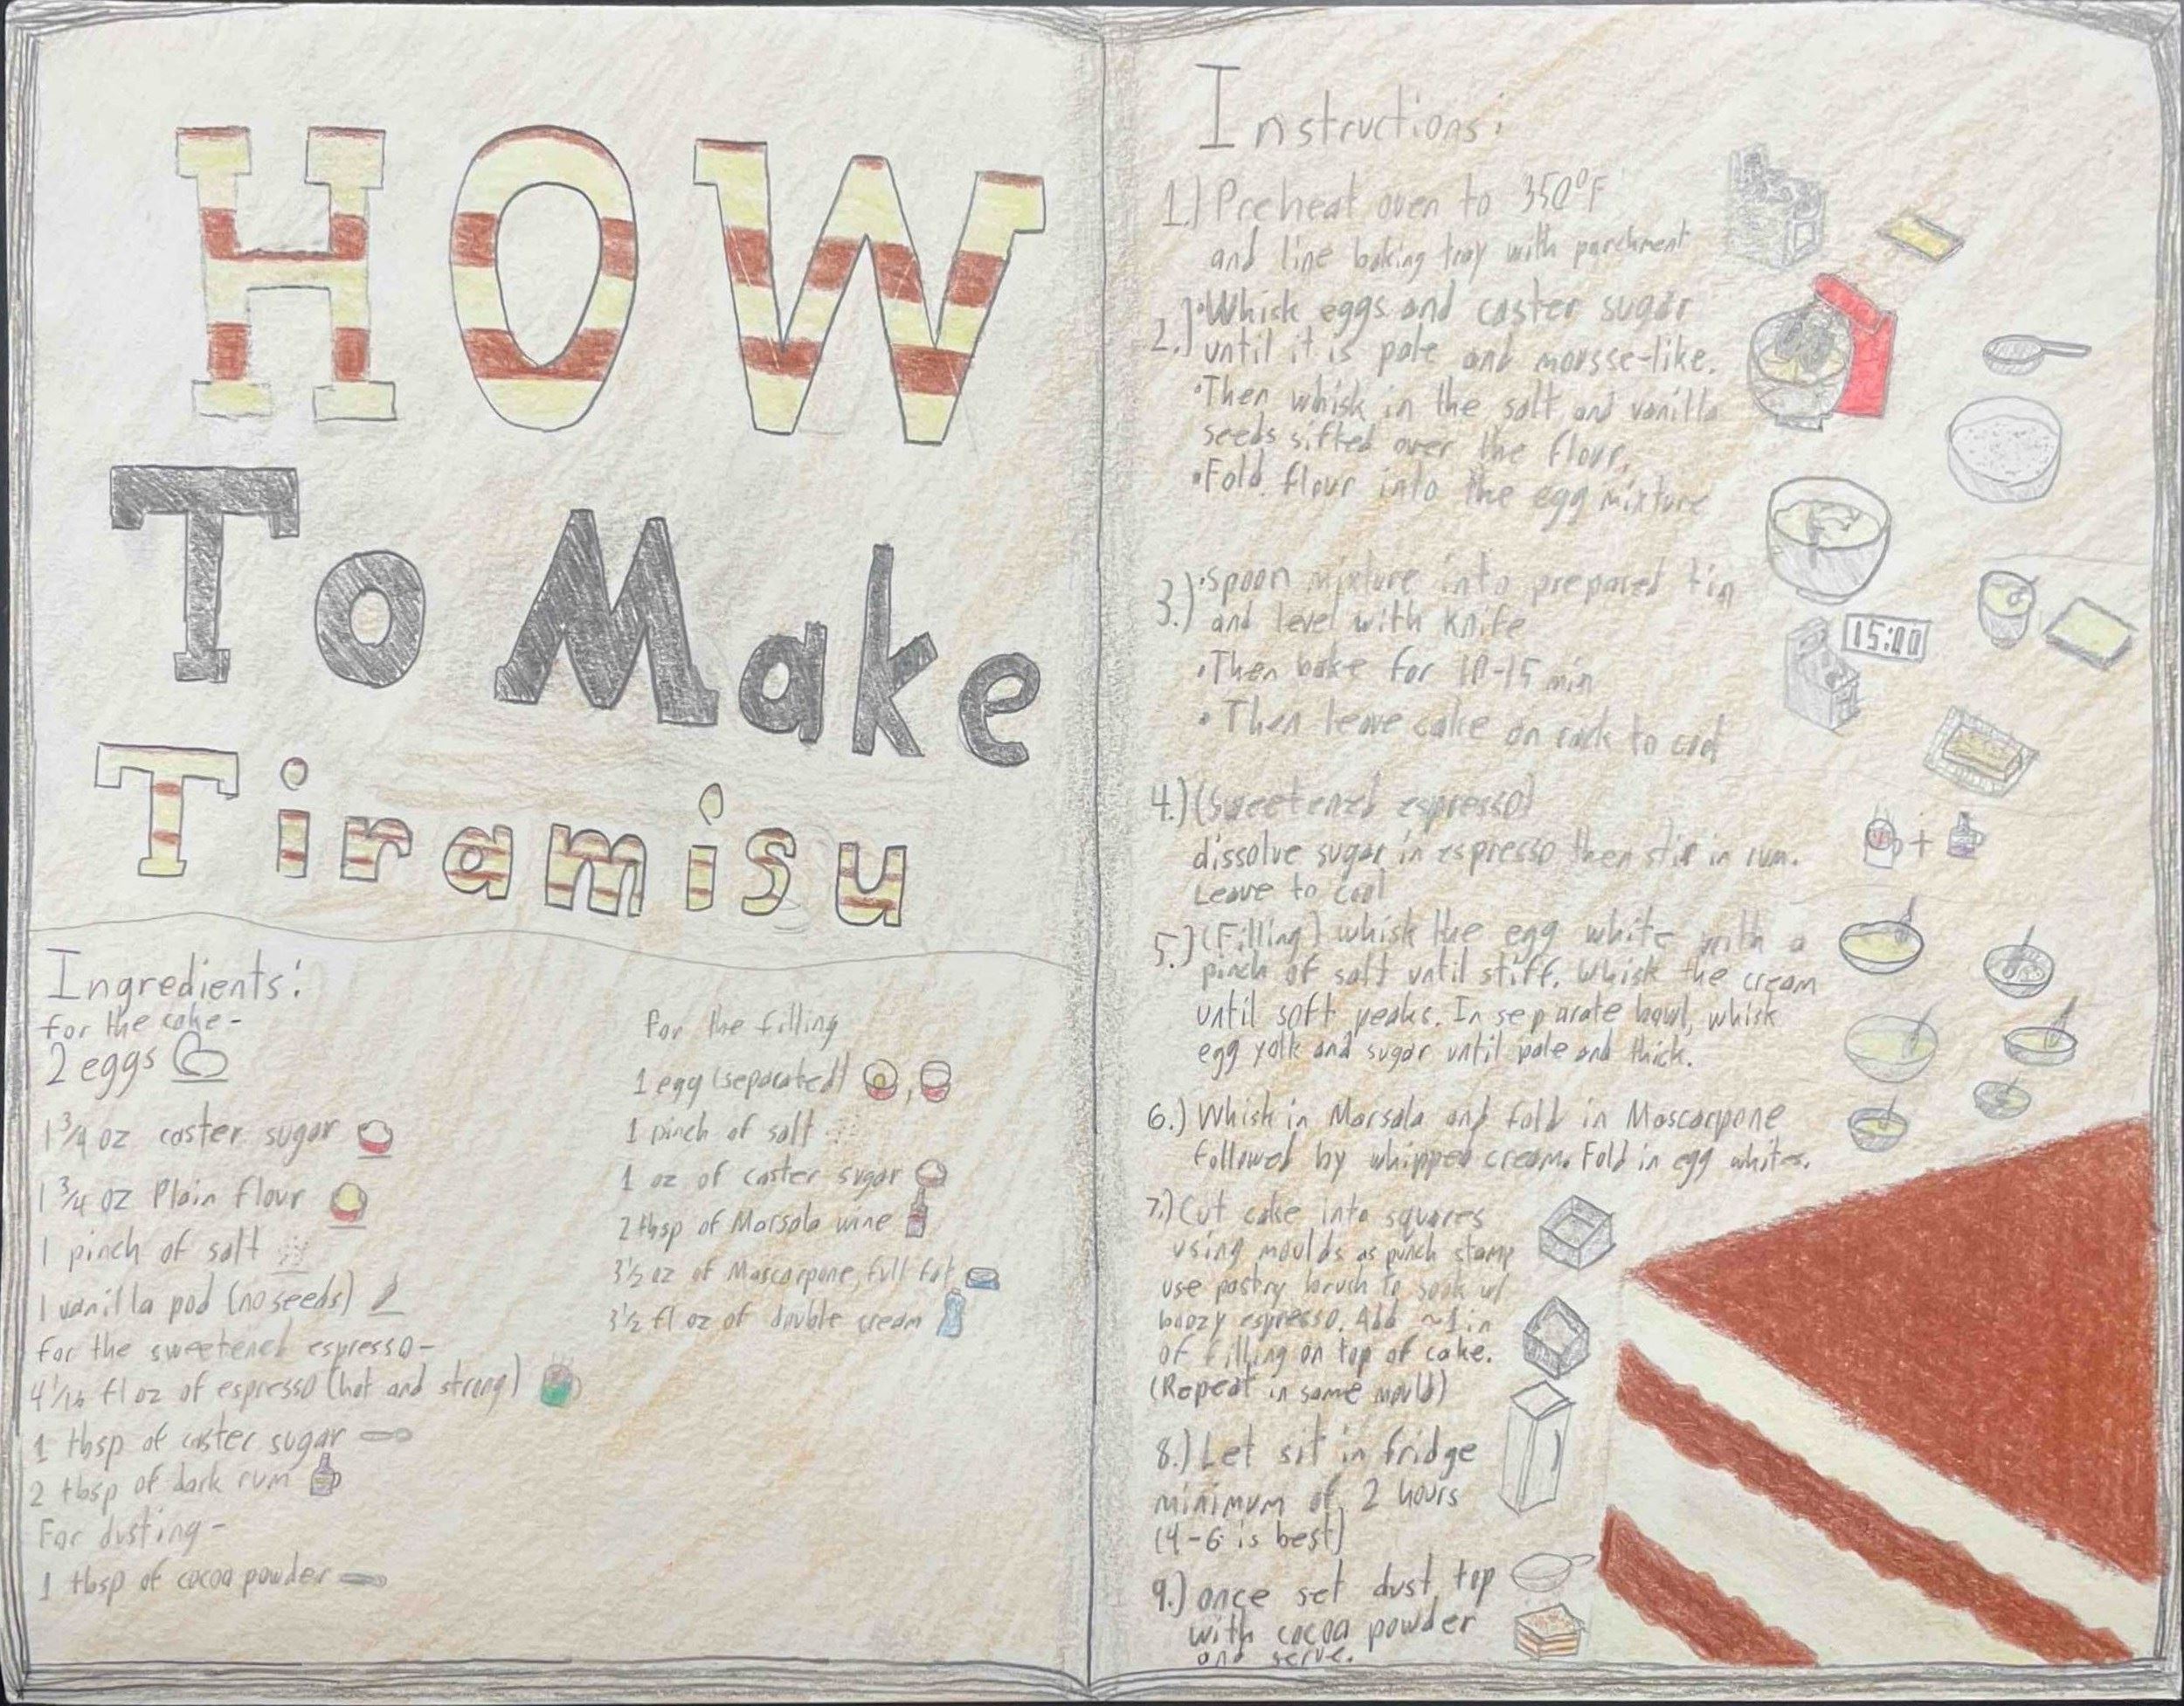 HOW
To Make
Tiramisu
Ingredients:
for the cake-
2 eggs
1 3/4 oz caster sugar
1 3/4 oz Plain flour
1 pinch of salt
1 vanilla pod (no seeds)
for the sweetened espresso-
4 1/16 fl oz of espresso (hot and strong)
1 tbsp of caster sugar
2 tbsp of dark rum
For dusting-
1 tbsp of cocoa powder
for the filling
1 egg (separated)
1 pinch of salt
1 oz of caster sugar
2 tbsp of Marsala wine
3 1/2 oz of Mascarpone, full fat
3 1/2 fl oz of double cream
Instructions:
1.) Preheat oven to 350°F
and line baking tray with parchment
2.) •Whisk eggs and caster sugar
until it is pale and mousse-like.
•Then whisk in the salt and vanilla
seeds sifted over the flour.
•Fold flour into the egg mixture
3.) •spoon mixture into prepared tin
and level with knife
•Then bake for 10-15 min
• Then leave cake on rack to cool
15:00
4.) (sweetened espresso)
dissolve sugar in espresso then stir in rum.
Leave to cool
+
5.) (Filling) whisk the egg white with a
pinch of salt until stiff. Whisk the cream
until soft peaks. In separate bowl, whisk
egg yolk and sugar until pale and thick.
6.) Whisk in Marsala and fold in Mascarpone
followed by whipped cream. Fold in egg whites.
7.) Cut cake into squares
using moulds as punch stamp
use pastry brush to soak w/
boozy espresso. Add ~1 in
of filling on top of cake.
(Repeat in same mould)
8.) Let sit in fridge
minimum of 2 hours
(4-6 is best)
9.) once set dust top
with cocoa powder
and serve.